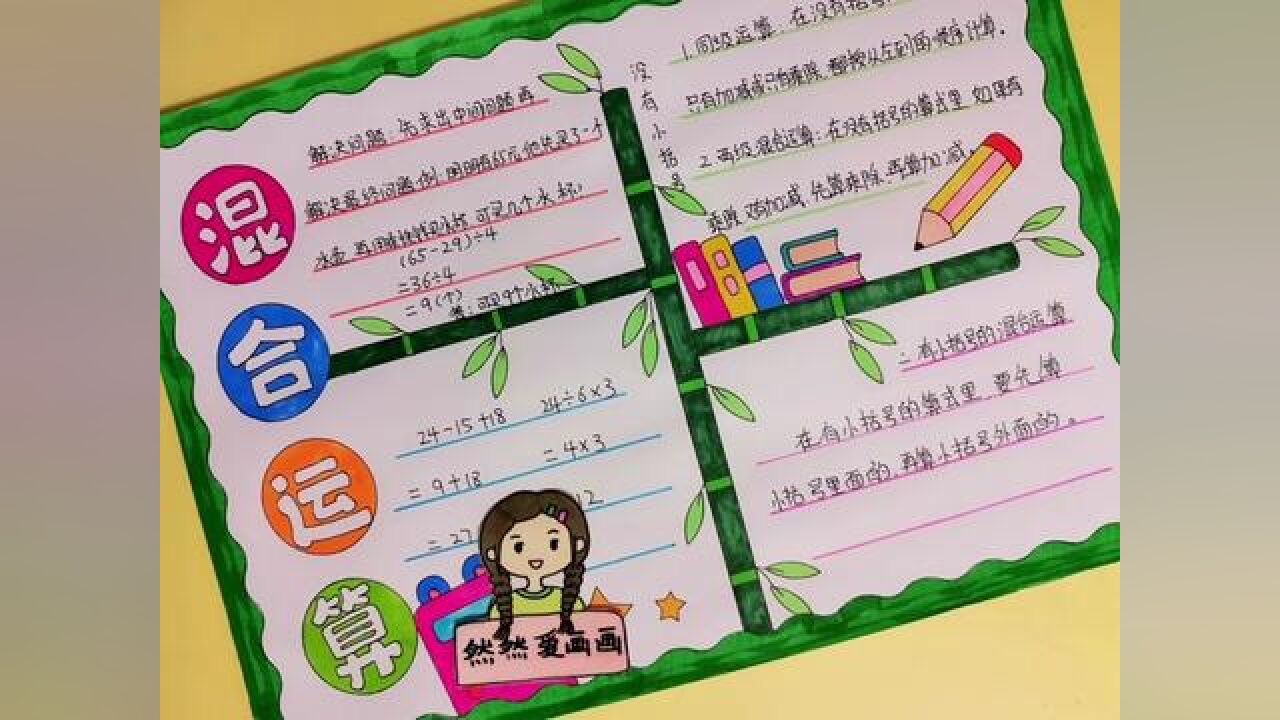 混
合
运
算
解决问题 先求出中间问题再
解决最终问题.例:
水壶 再用 可买几个水杯?
(65-29)÷4
=36÷4
=9(个)
答:可买9个水杯
没有小括号
1.同级运算:在没有括号
只有加减或只有乘除,都按从左到右的顺序计算。
2.两级混合运算:在没有括号的算式里,如果有
乘除 加减,先算乘除,再算加减
24-15+18 24÷6×3
=9+18 =4×3
=27 12
二.有小括号的混合运算
在有小括号的算式里,要先算
小括号里面的,再算小括号外面的。
然然爱画画